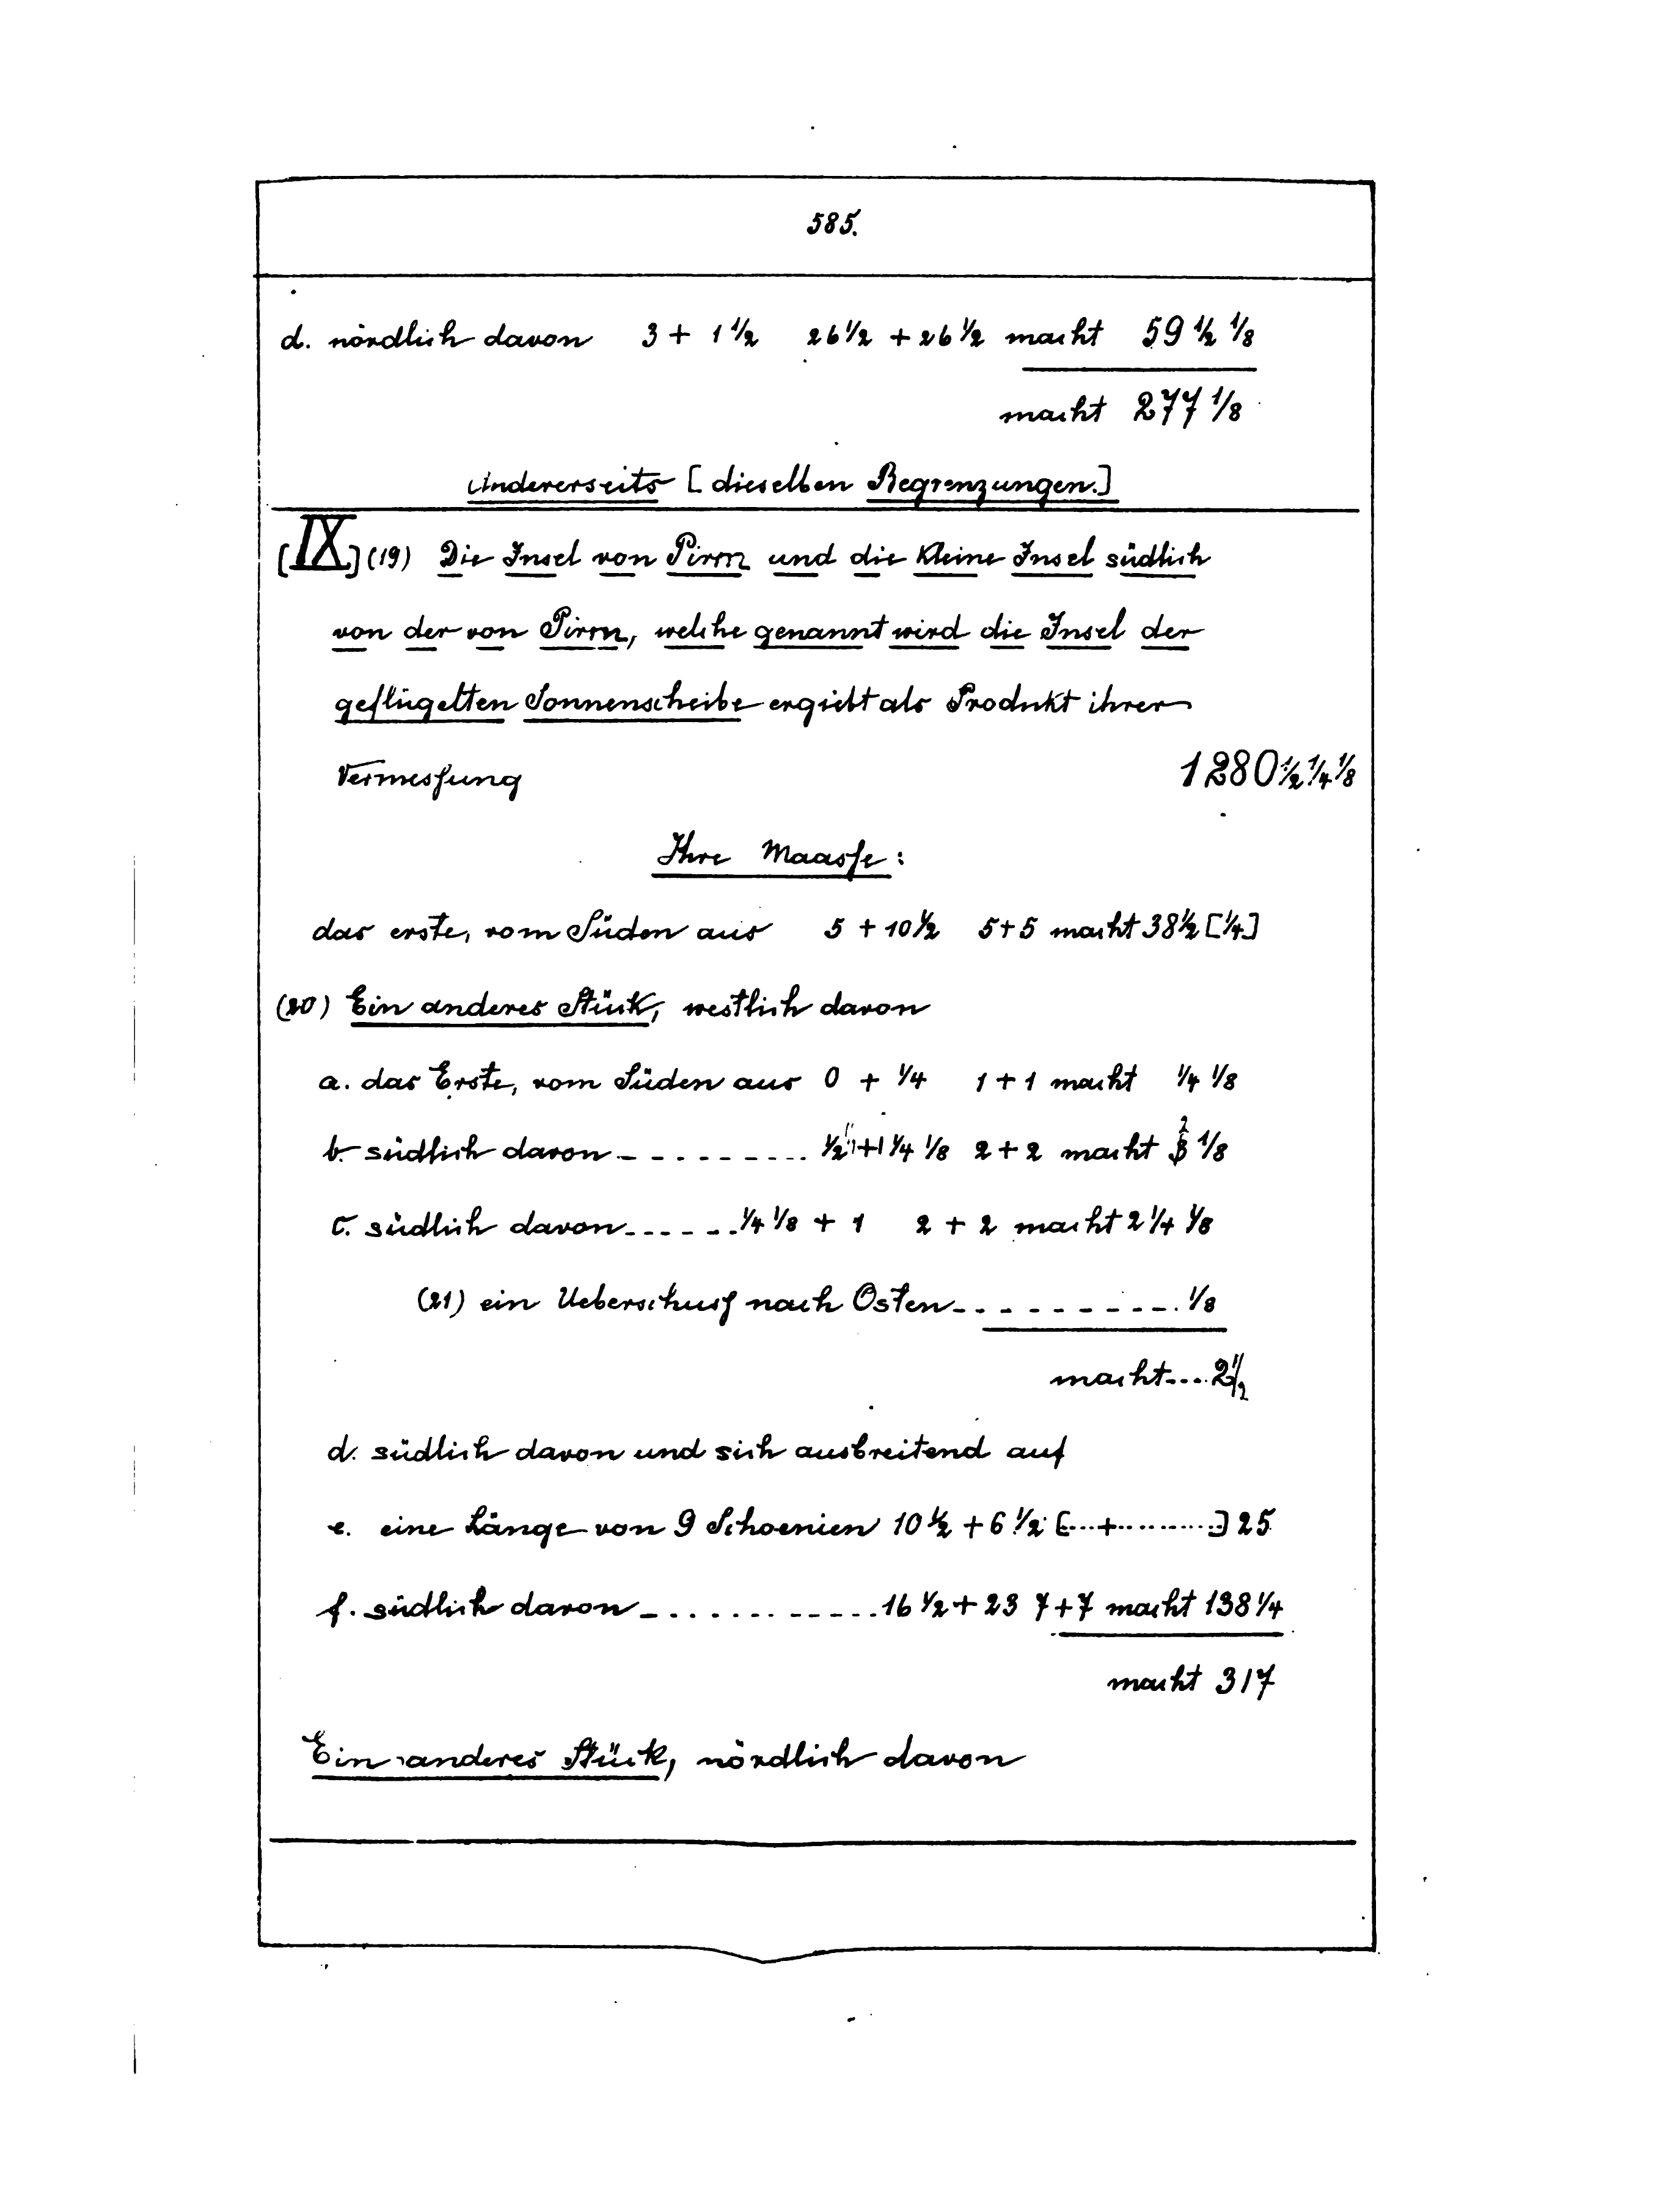 585.
d. nördlich davon 3 + 1 1/2 26 1/2 + 26 1/2 macht 59 1/2 1/8
macht 277 1/8
Andererseits [dieselben Begrenzungen.]
[IX] (19) Die Insel von Pirm und die kleine Insel südlich
von der von Pirm, welche genannt wird die Insel der
geflügelten Sonnenscheibe ergiebt als Produkt ihrer
Vermessung 1280 1/2 1/4 1/8
Ihre Maasse:
das erste, vom Süden aus 5 + 10 1/2 5+5 macht 38 1/2 [1/4]
(20) Ein anderes Stück, westlich davon
a. das Erste, vom Süden aus 0 + 1/4 1 + 1 macht 1/4 1/8
b. südlich davon - - - - - - - - - - 1/2 + 1 1/4 1/8 2 + 2 macht 2 1/8
c. südlich davon - - - - - - - 1/4 1/8 + 1 2 + 2 macht 2 1/4 1/8
(21) ein Ueberschuss nach Osten - - - - - - - - - - 1/8
macht .... 2 1/2
d. südlich davon und sich ausbreitend auf
e. eine Länge von 9 Schoenien 10 1/2 + 6 1/2 [...+.........] 25
f. südlich davon - . . . . . . . - - - - . 16 1/2 + 23 7+7 macht 138 1/4
macht 317
Ein anderes Stück, nördlich davon